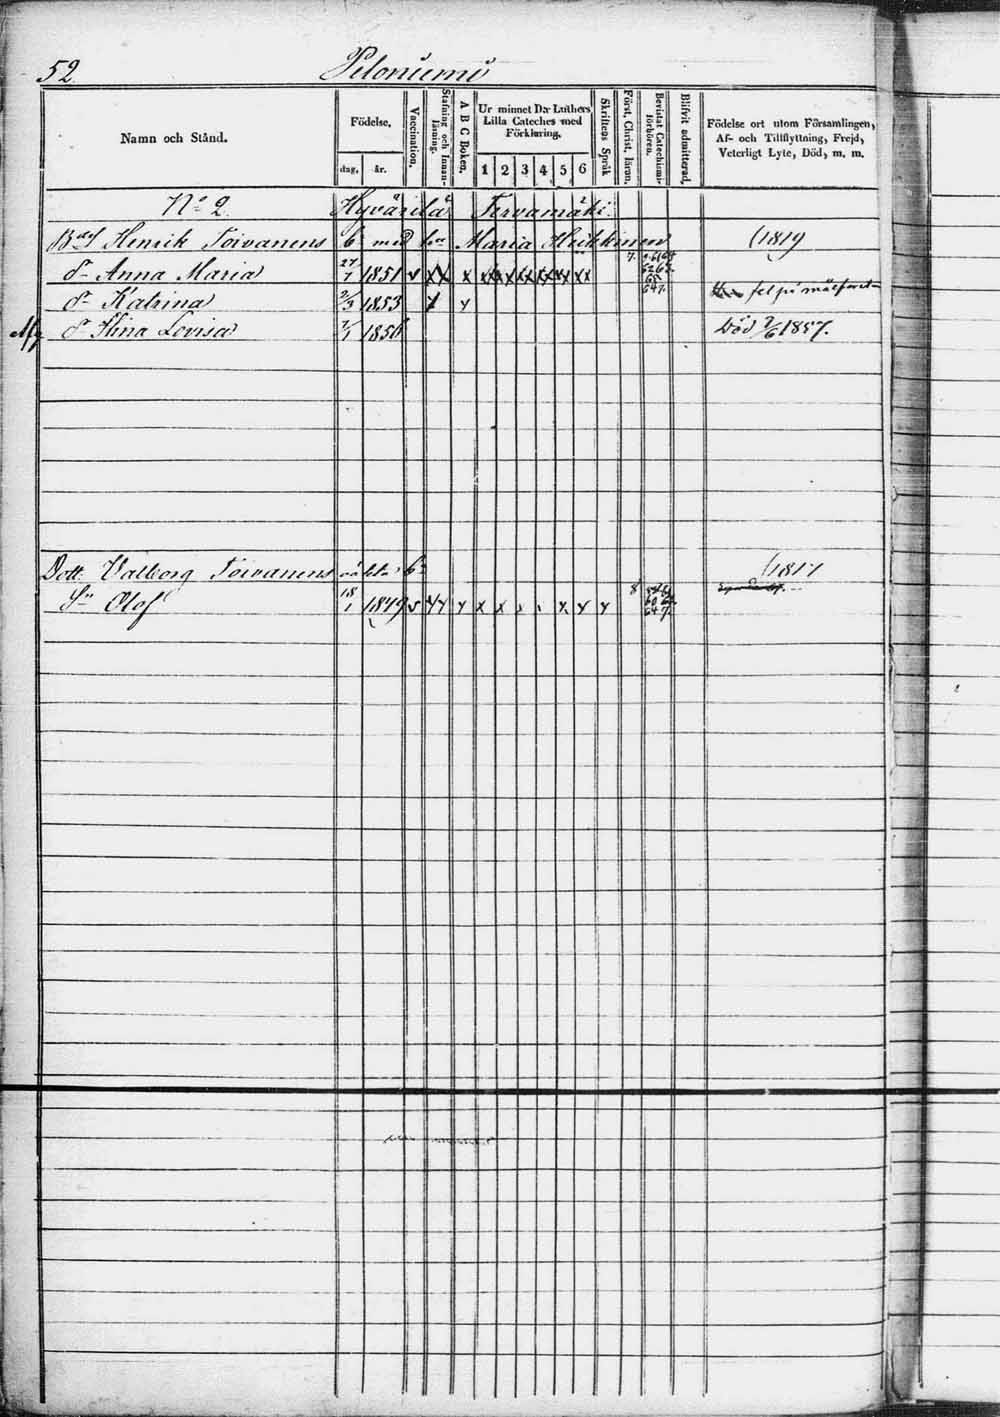 52. Peloniemi
Namn och Stånd.
Födelse.
dag. år.
Vaccination.
Stafning och Innanläsning.
A B C Boken.
Ur minnet Dr Luthers
Lilla Cateches med
Förklaring.
1 2 3 4 5 6
Skriftens Språk
Först. Christ. läran.
Bevistat Catechismiförhören.
Blifvit admitterad.
Födelse ort utom Församlingen,
Af- och Tillflyttning, Frejd,
Veterligt Lyte, Död, m. m.
No 2 Hyvärilä Tervamäki.
Henrik Toivanens med Maria Heikkinen (1819
Anna Maria 27/7 1851 v x x x x x x x x x x x 7.
dr Katrina 2/3 1853 x y fel på målföret
dr Stina Lovisa 1856 Död 2/6 1857.
Dott. Valborg Toivanens oäkta (1817
Sn Olof 18/1 1849 v y y y x x x y y 8